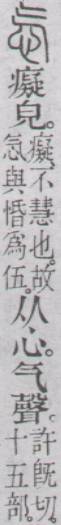 忥癡皃。癡、不慧也。故忥與惛爲伍。从心。气聲。許旣切。十五部。